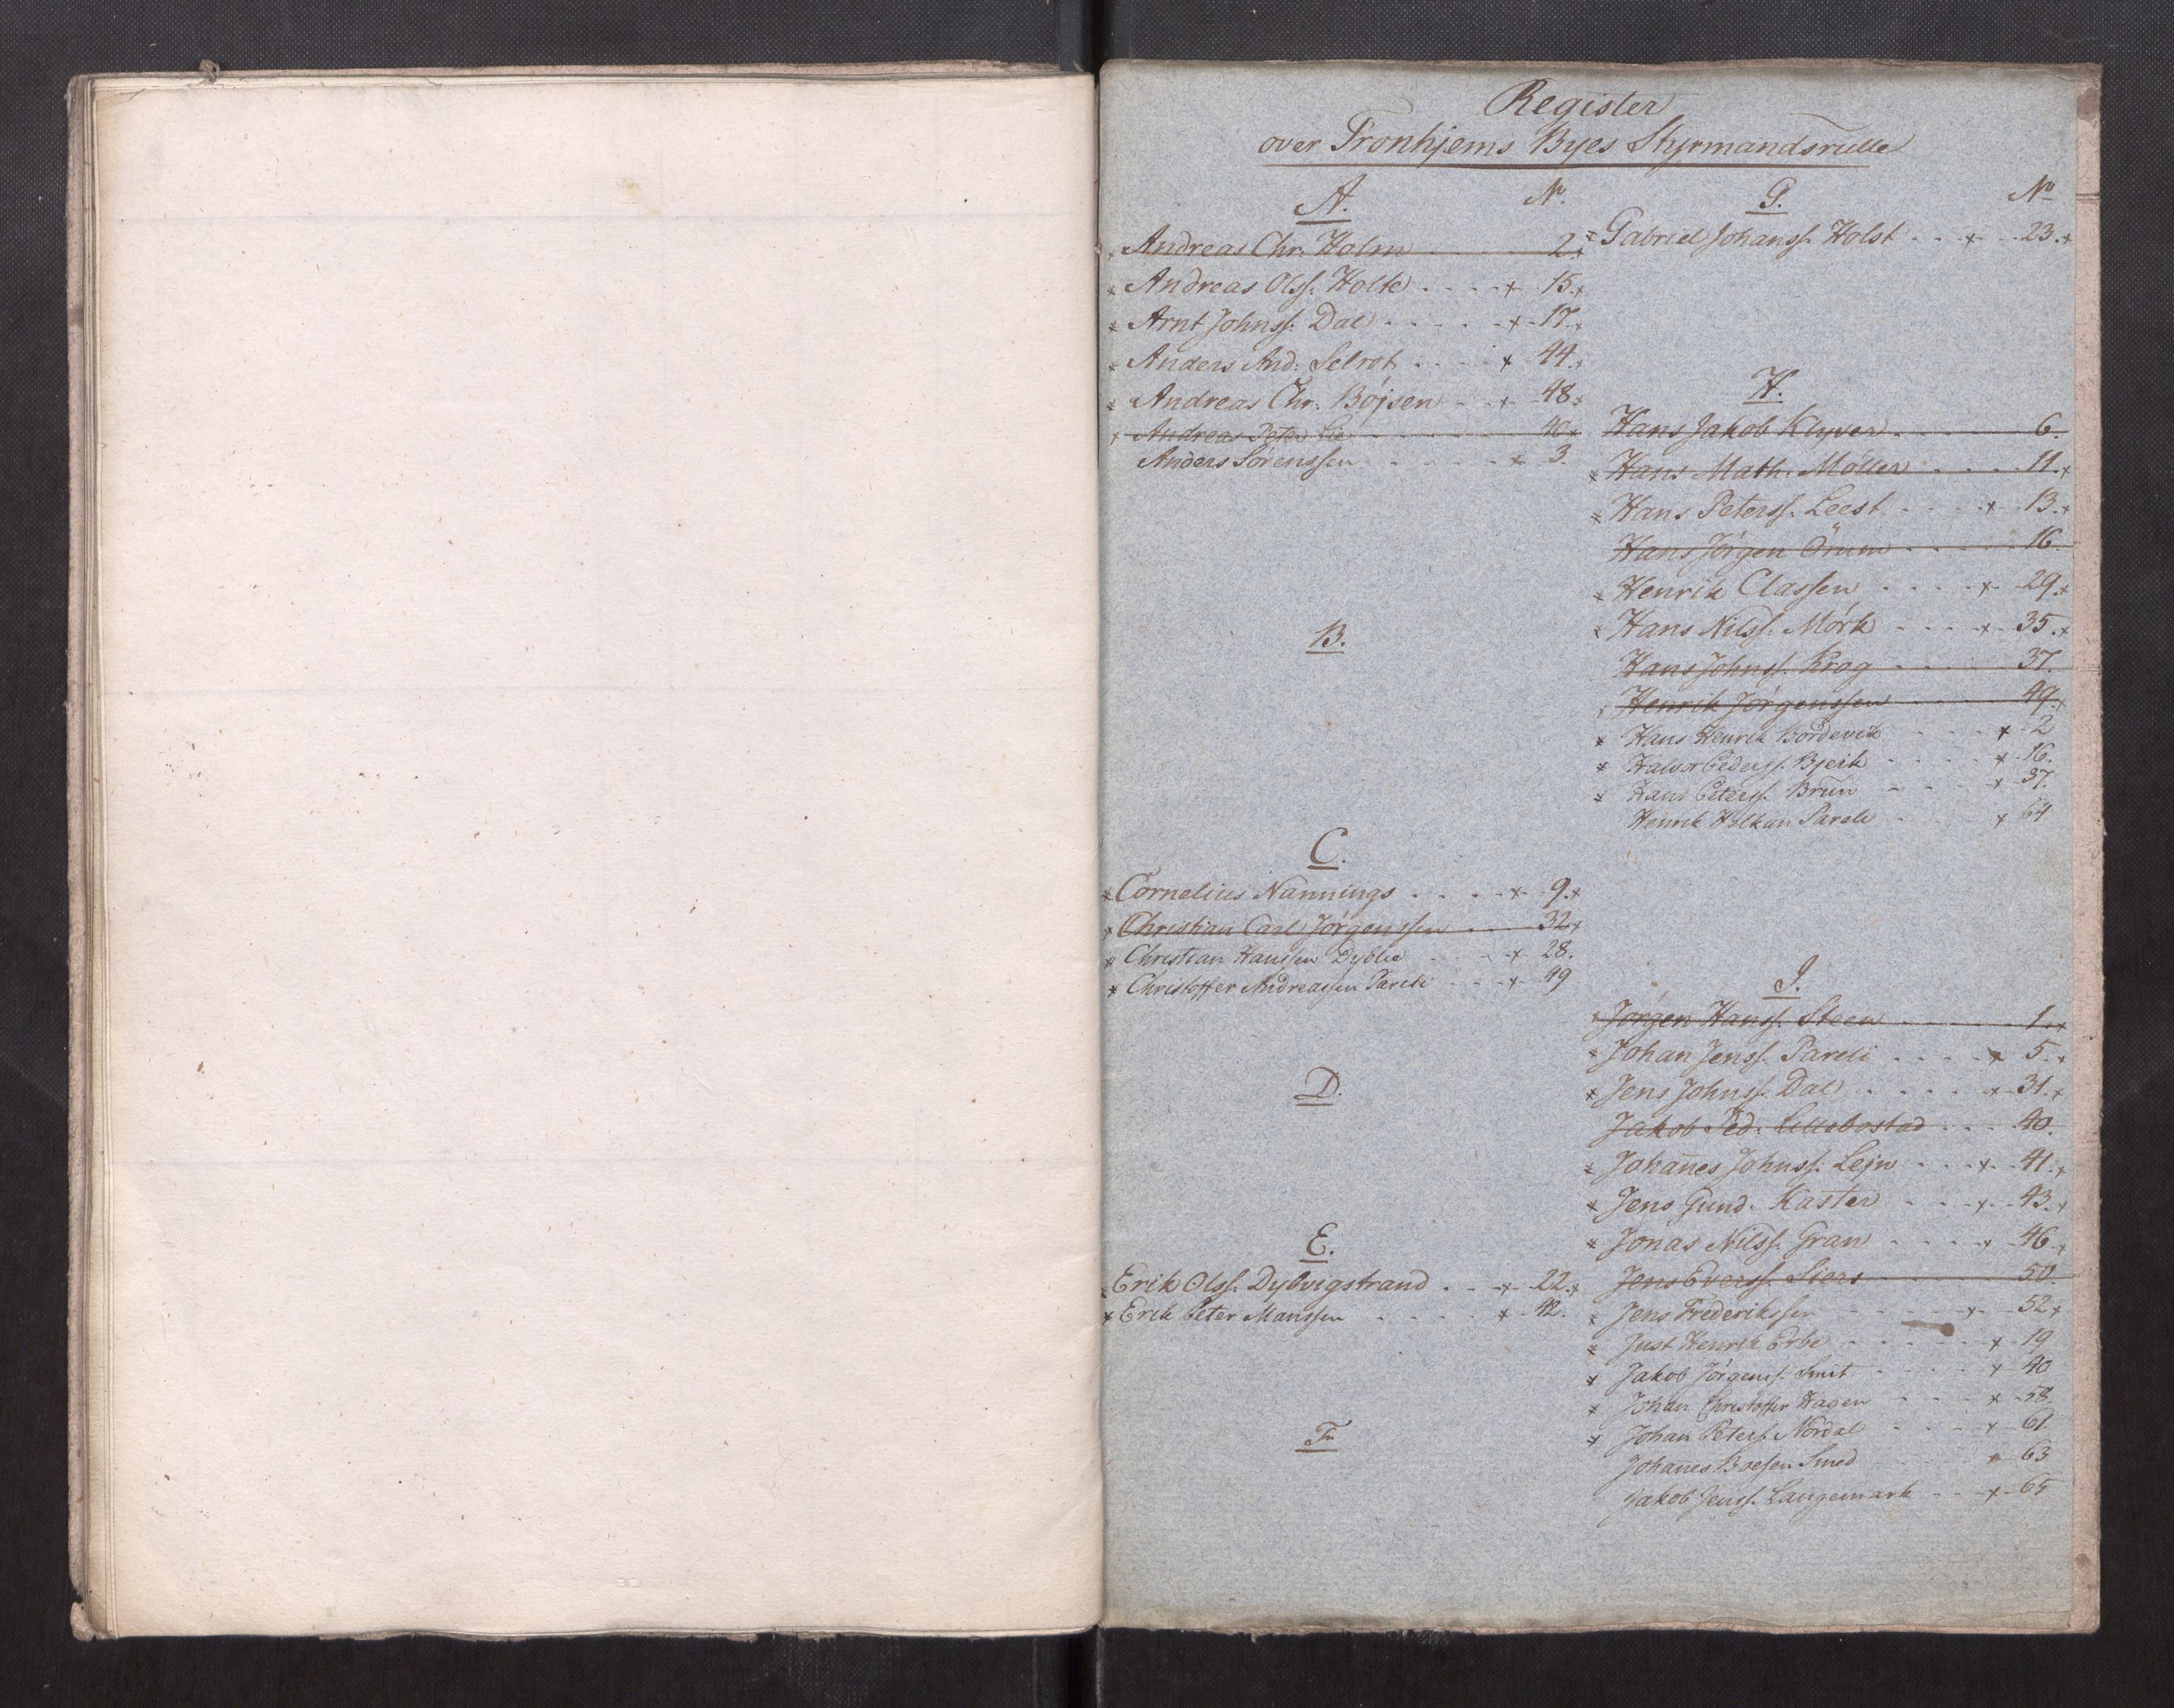 Register
over Tronhjems Byes Styrmandsrulle
A. No.
Andreas Chr. Holm 2.
Andreas Olss. Holte 15.
Arnt Johnss. Dal 17.
Anders And: Selrot 44.
Andreas Chr. Böjsen 48.
Andreas Peter Lie 40
Anders Sörenssen 3.
B.
C.
Cornelius Nannings 9.
Christian Carl Jörgenssen 32
Christian Hanssen Dyblie 28.
Christoffer Andreassen Pareli 49
D.
E.
Erik Olss. Dybvigstrand 22.
Erik Peter Manssen 42.
F.
G. No
Gabriel Johanss. Holst 23.
H.
Hans Jakob Klyver 6.
Hans Math. Möller 11.
Hans Peterss. Leest 13.
Hans Jörgen Örum 16.
Henrik Classen 29.
Hans Nilss. Mörk 35.
Hans Johnss. Krog 37.
Henrik Jörgenssen 49.
Hans Henrik Bordevik 2
Halvor Pederss. Bjerk 16.
Hans Peterss. Brun 37.
Henrik Pareli 64
I.
Jörgen Hanss. Steen 1.
Johan Jenss. Pareli 5.
Jens Johnss. Dal 31.
Jakob Ped. Lillebostad 40.
Johanes Johnss. Lejn 41.
Jens Gund. Kaster 43.
Jonas Nilss. Gran 46.
Jens Everss. Siers 50.
Jens Frederikssen 52
Just Henrik Erbe 19
Jakob Jörgenss. Smit 40
Johan Christoffer Hagen 58.
Johan Peterss. Nordal 61.
Johanes Boesen Smed 63
Jakob Jenss. Langemark 65